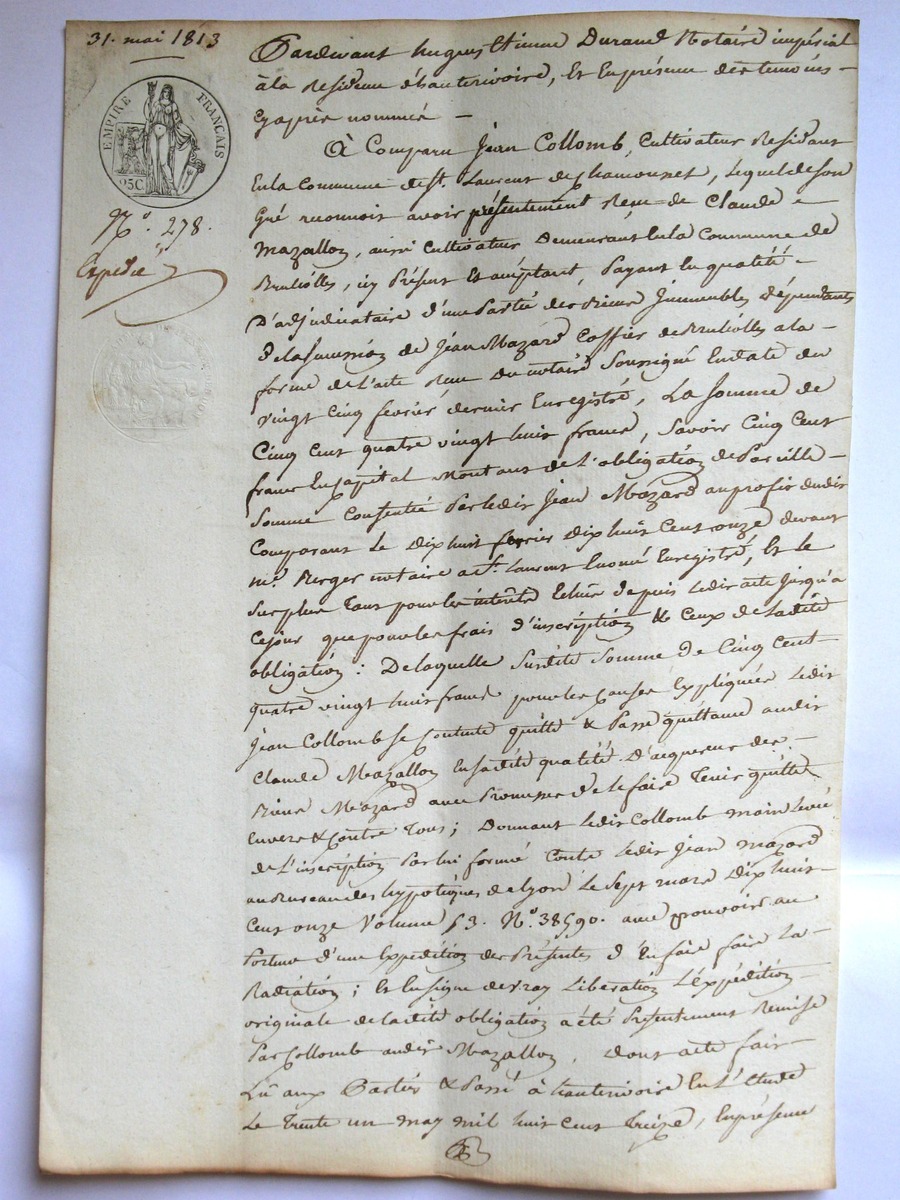 31. mai 1813
EMPIRE FRANÇAIS
95C.
N.° 278.
Expédié
Pardevant hugues Etienne Durand Notaire impérial
à la Residence d'hauterivoire, Et en présence des temoins
cy après nommés
A Comparu Jean Collomb, Cultivateur Residant
En la Commune de St. Laurent de Chamousset, lequel de son
Gré reconnoit avoir présentement Reçu de Claude
Mazallon, aussi Cultivateur Demeurant En la Commune de
Bruliolles, icy Présent Et acceptant, Payant En qualité
D'adjudicataire d'une Partie des Biens Immeubles dépendants
de la succession de Jean Mazard Coffier de Brulliolles a la
forme de l'acte Reçu Du notaire Soussigné En date du
vingt Cinq fevrier dernier Enregistré, La Somme de
Cinq Cent quatre vingt huit francs, Savoir Cinq Cent
francs En Capital Montant de L'obligation de Pareille
Somme Consentie Par ledit Jean Mazard au profit dudit
Comparant Le Dix huit fevrier Dix huit Cent onze devant
me. Berger notaire a St. Laurent Enoncé Enregistré, Et le
Surplus Tant pour les intérêts Echus depuis ledit acte jusqu'a
Ce jour que pour les frais d'inscription & Ceux de ladite
obligation : De laquelle Susdite Somme de Cinq Cent
quatre vingt huit francs pour les Causes Expliquées ledit
Jean Collomb se Contente quitte & Passe quittance audit
Claude Mazallon En sadite qualité D'acquereur des
Biens Mazard avec Promesse de le faire Tenir quitte
Envers & Contre Tous ; Donnant ledit Collomb main levée
de L'inscription Par lui formée Contre ledit Jean Mazard
au Bureau des hypotèques de Lyon Le Sept mars Dix huit
Cent onze Volume 53. N.° 38590. avec pouvoir au
Porteur d'une Expédition des Présentes d'En faire faire La
Radiation ; Et En signe de vray Liberation L'Expédition
originale de ladite obligation a été Présentement Remise
Par Collomb audit Mazallon, Dont acte fait
Lû aux Parties & Passé à hauterivoire En L'Etude
Le Trente un may mil huit cent Treize, En présence